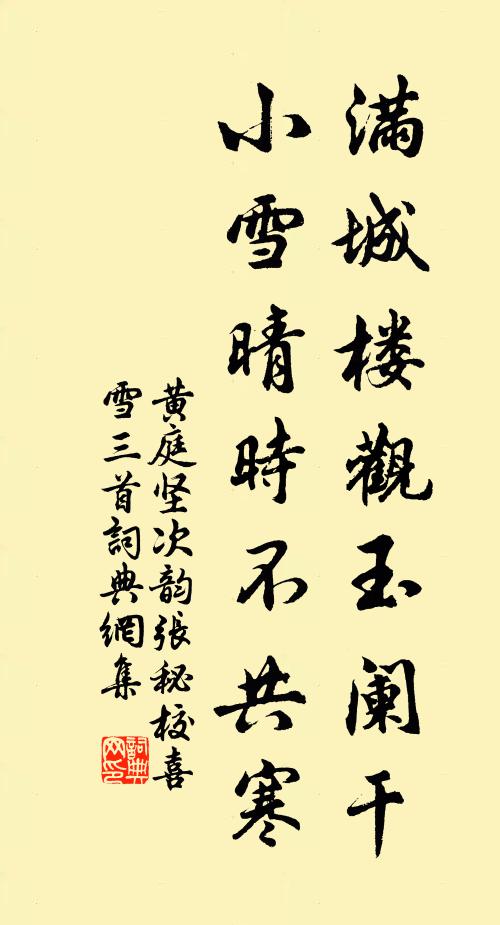 滿城楼觀玉阑干
小雪晴時不共寒
黄庭坚次韵張秘校喜
雪三首詞典網集
詞典
网印